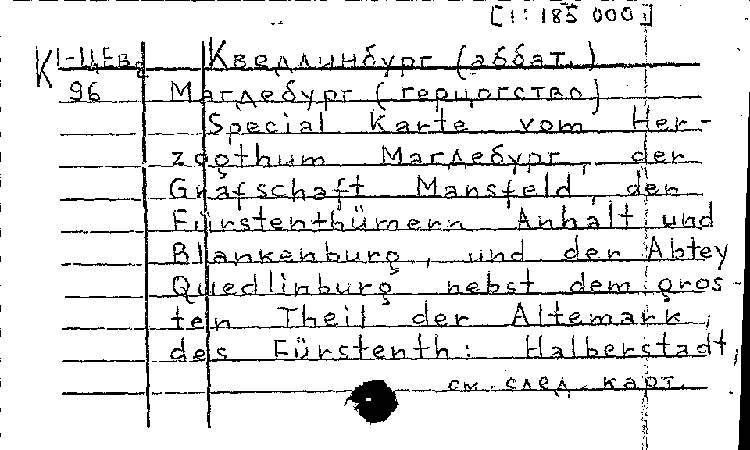 [1:185 000]
К 1-ЦЕв Кведлинбург (аббат.)
96 Магдебург (герцогство)
Special Karte vom Her-
zogthum Магдебург, der
Grafschaft Mansfeld, den
Fürstenthümern Anhalt und
Blankenburg, und der Abtey
Quedlinburg nebst dem gros-
ten Theil der Altemark,
des Fürstenth: Halberstadt,
см. след. карт.